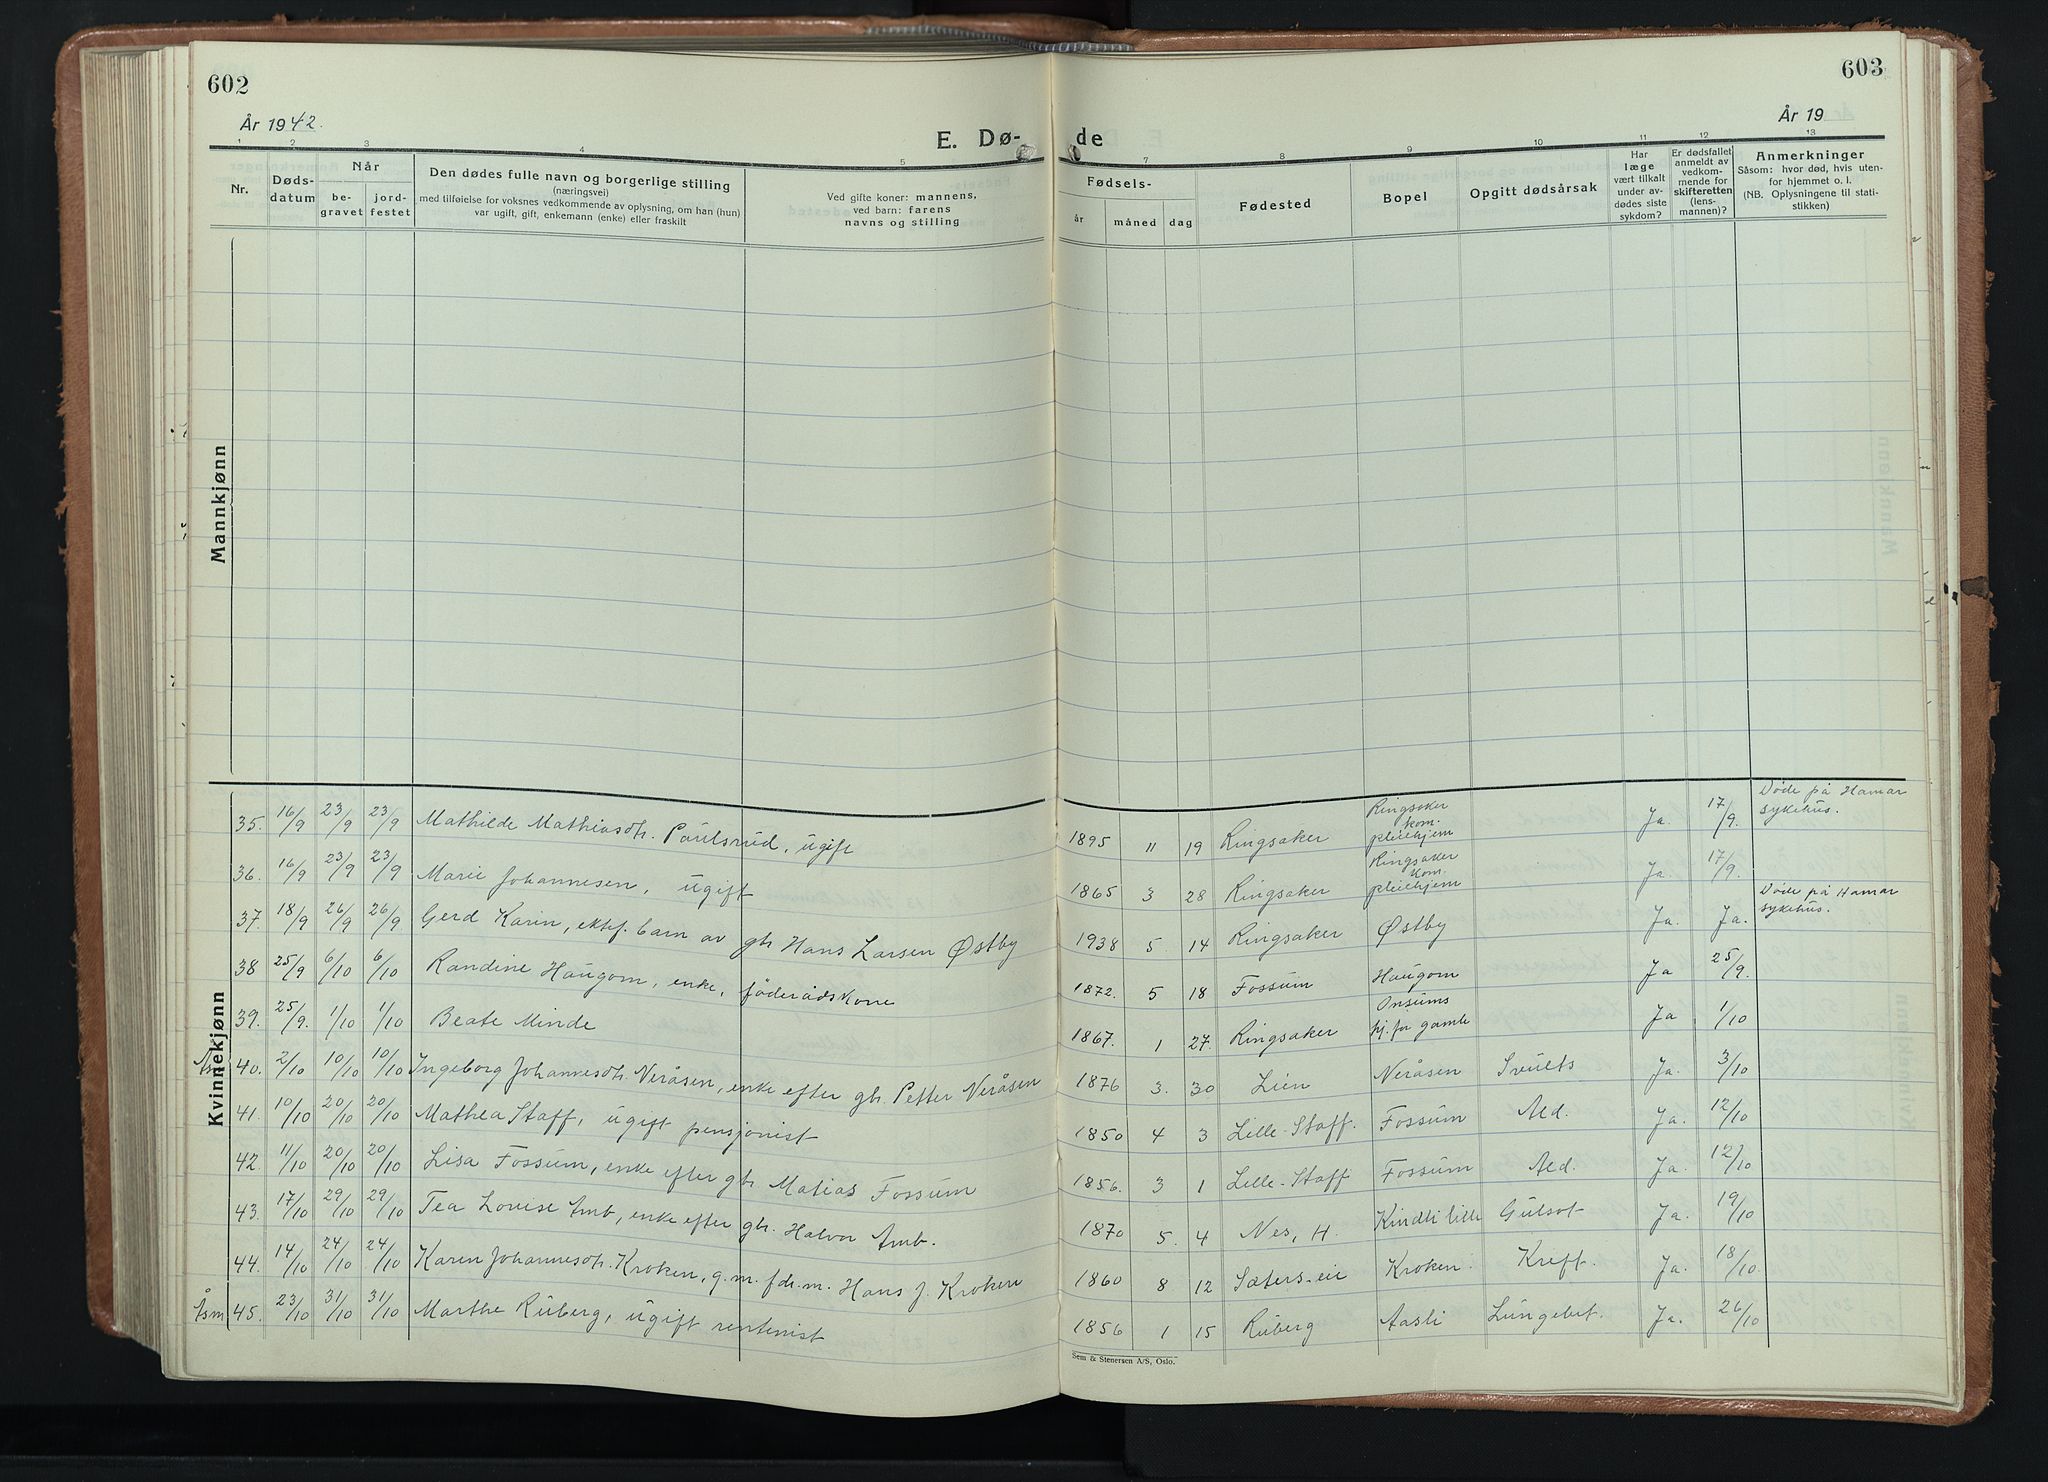 602
603
År 1942.
År 19
E. Dø-
de
1 2 3 4 5 7 8 9 10 11 12 13
Nr.
Døds-
datum
Når
be-
gravet
jord-
festet
Den dødes fulle navn og borgerlige stilling
(næringsvei)
med tilføielse for voksnes vedkommende av oplysning, om han (hun)
var ugift, gift, enkemann (enke) eller fraskilt
Ved gifte koner: mannens,
ved barn: farens
navns og stilling
Fødsels-
år
måned
dag
Fødested
Bopel
Opgitt dødsårsak
Har
læge
vært tilkalt
under av-
dødes siste
sykdom?
Er dødsfallet
anmeldt av
vedkom-
mende for
skifteretten
(lens-
mannen)?
Anmerkninger
Såsom: hvor død, hvis uten-
for hjemmet o. l.
(NB. Oplysningene til stati-
stikken)
Mannkjønn
Kvinnekjønn
35. 16/9 23/9 23/9 Mathilde Mathiasdtr. Paulsrud, ugift 1895 11 19 Ringsaker Ringsaker kom. pleiehjem Ja. 17/9. Døde på Hamar sykehus.
36. 16/9 23/9 23/9 Marie Johannesen, ugift 1865 3 28 Ringsaker Ringsaker kom. pleiehjem Ja. 17/9.
37. 18/9 26/9 26/9 Gerd Karin, ektef. barn av gbr. Hans Larsen Østby 1938 5 14 Ringsaker Østby Ja. Ja. Døde på Hamar sykehus.
38 25/9 6/10 6/10 Randine Haugom, enke, føderådskone 1872. 5 18 Fossum Haugom Ja 25/9.
39. 25/9. 1/10 1/10 Beate Minde 1867. 1 27. Ringsaker Onsums hj. for gamle Ja 1/10
40. 2/10 10/10 10/10 Ingeborg Johannesdtr. Neråsen, enke efter gbr. Petter Neråsen 1876 3. 30 Lien Neråsen Svults Ja. 3/10
41. 10/10 20/10 20/10 Mathea Staff, ugift pensjonist 1850 4 3 Lille-Staff. Fossum Ald. Ja. 12/10
42. 11/10 20/10 20/10 Lisa Fossum, enke efter gbr. Matias Fossum 1856. 3 1 Lille-Staff Fossum Ald. Ja. 12/10
43. 17/10 29/10 29/10 Tea Lovise Amb, enke efter gbr. Halvor Amb. 1870 5. 4 Nes, H. Kindli lille Gulsot Ja. 19/10
44. 14/10 24/10 24/10 Karen Johannesdtr. Kroken, g.m. fdr.m. Hans J. Kroken 1860 8 12 Sæters-eie Kroken Kreft. Ja. 18/10.
Åsm 45. 23/10 31/10 31/10 Marthe Ruberg, ugift rentenist 1856 1 15 Ruberg Aasli Lungebet. Ja. 26/10
Sem & Stenersen A/S, Oslo.